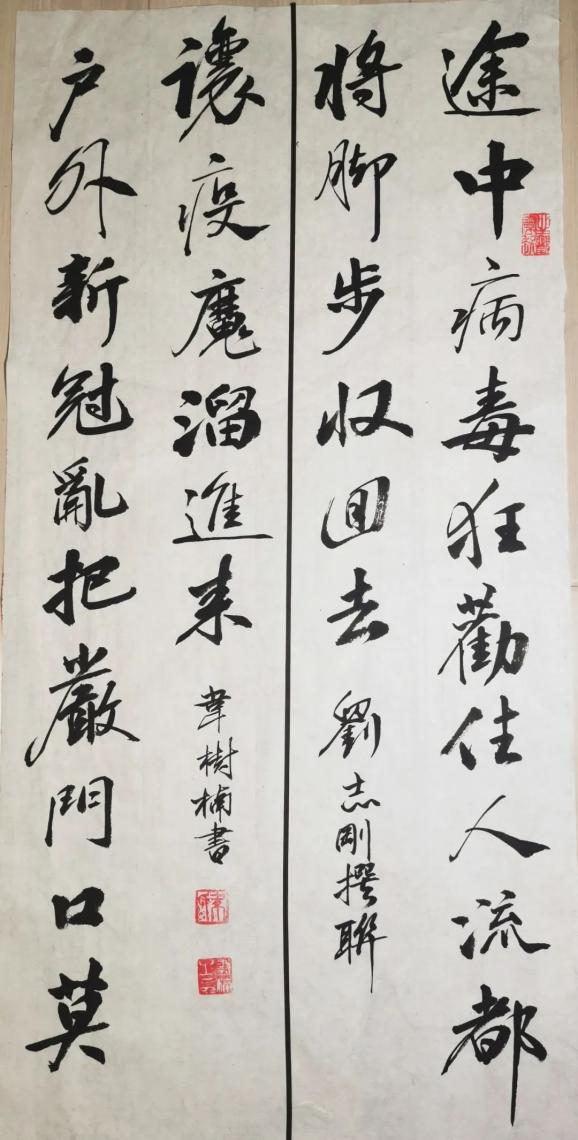 途中病毒狂勸住人流都
將脚步收回去
劉志剛撰聯
户外新冠亂把嚴門口莫
讓疫魔溜進来
韋樹楠書